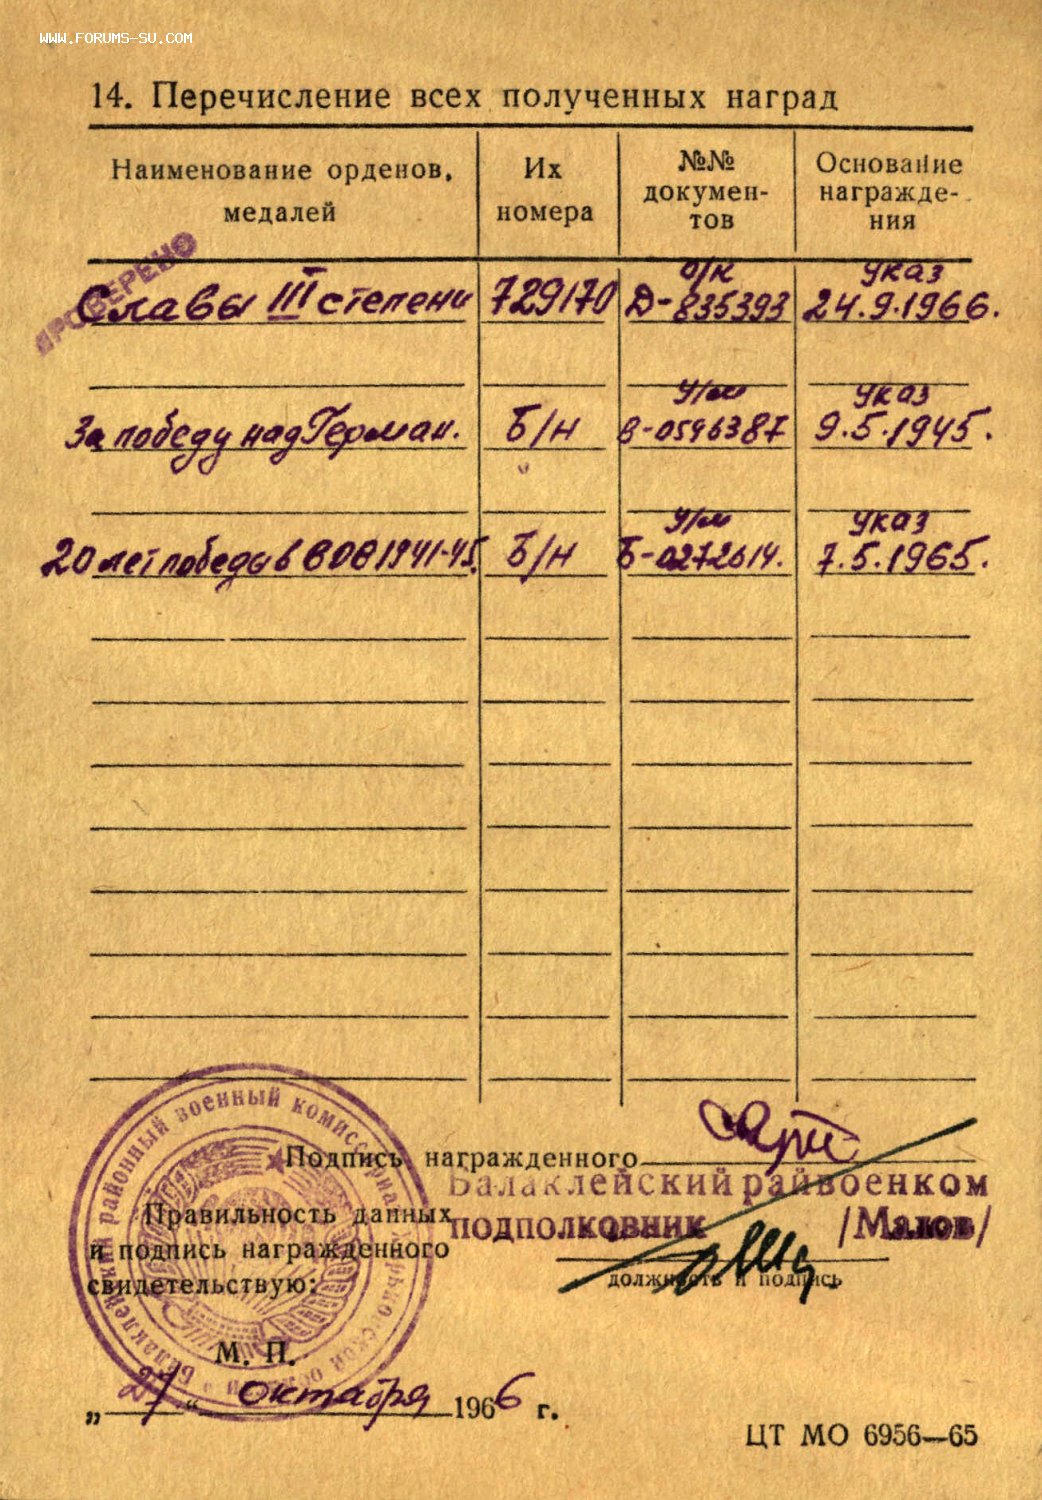 WWW.FORUMS-SU.COM
14. Перечисление всех полученных наград
Наименование орденов, медалей
Их номера
№№ документов
Основание награждения
ПРОВЕРЕНО
Славы III степени 729170 о/к Д-835393 указ 24.9.1966.
За победу над Герман. Б/н у/м В-0596387 указ 9.5.1945.
20 лет победы в ВОВ 1941-45. Б/н у/м Б-0272614. указ 7.5.1965.
Подпись награжденного
Балаклейский райвоенком
подполковник /Малов/
Правильность данных
и подпись награжденного
свидетельствую:
должность и подпись
М. П.
„27“ октября 1966 г.
Балаклейский районный военный комиссариат Харьковской области
ЦТ МО 6956—65